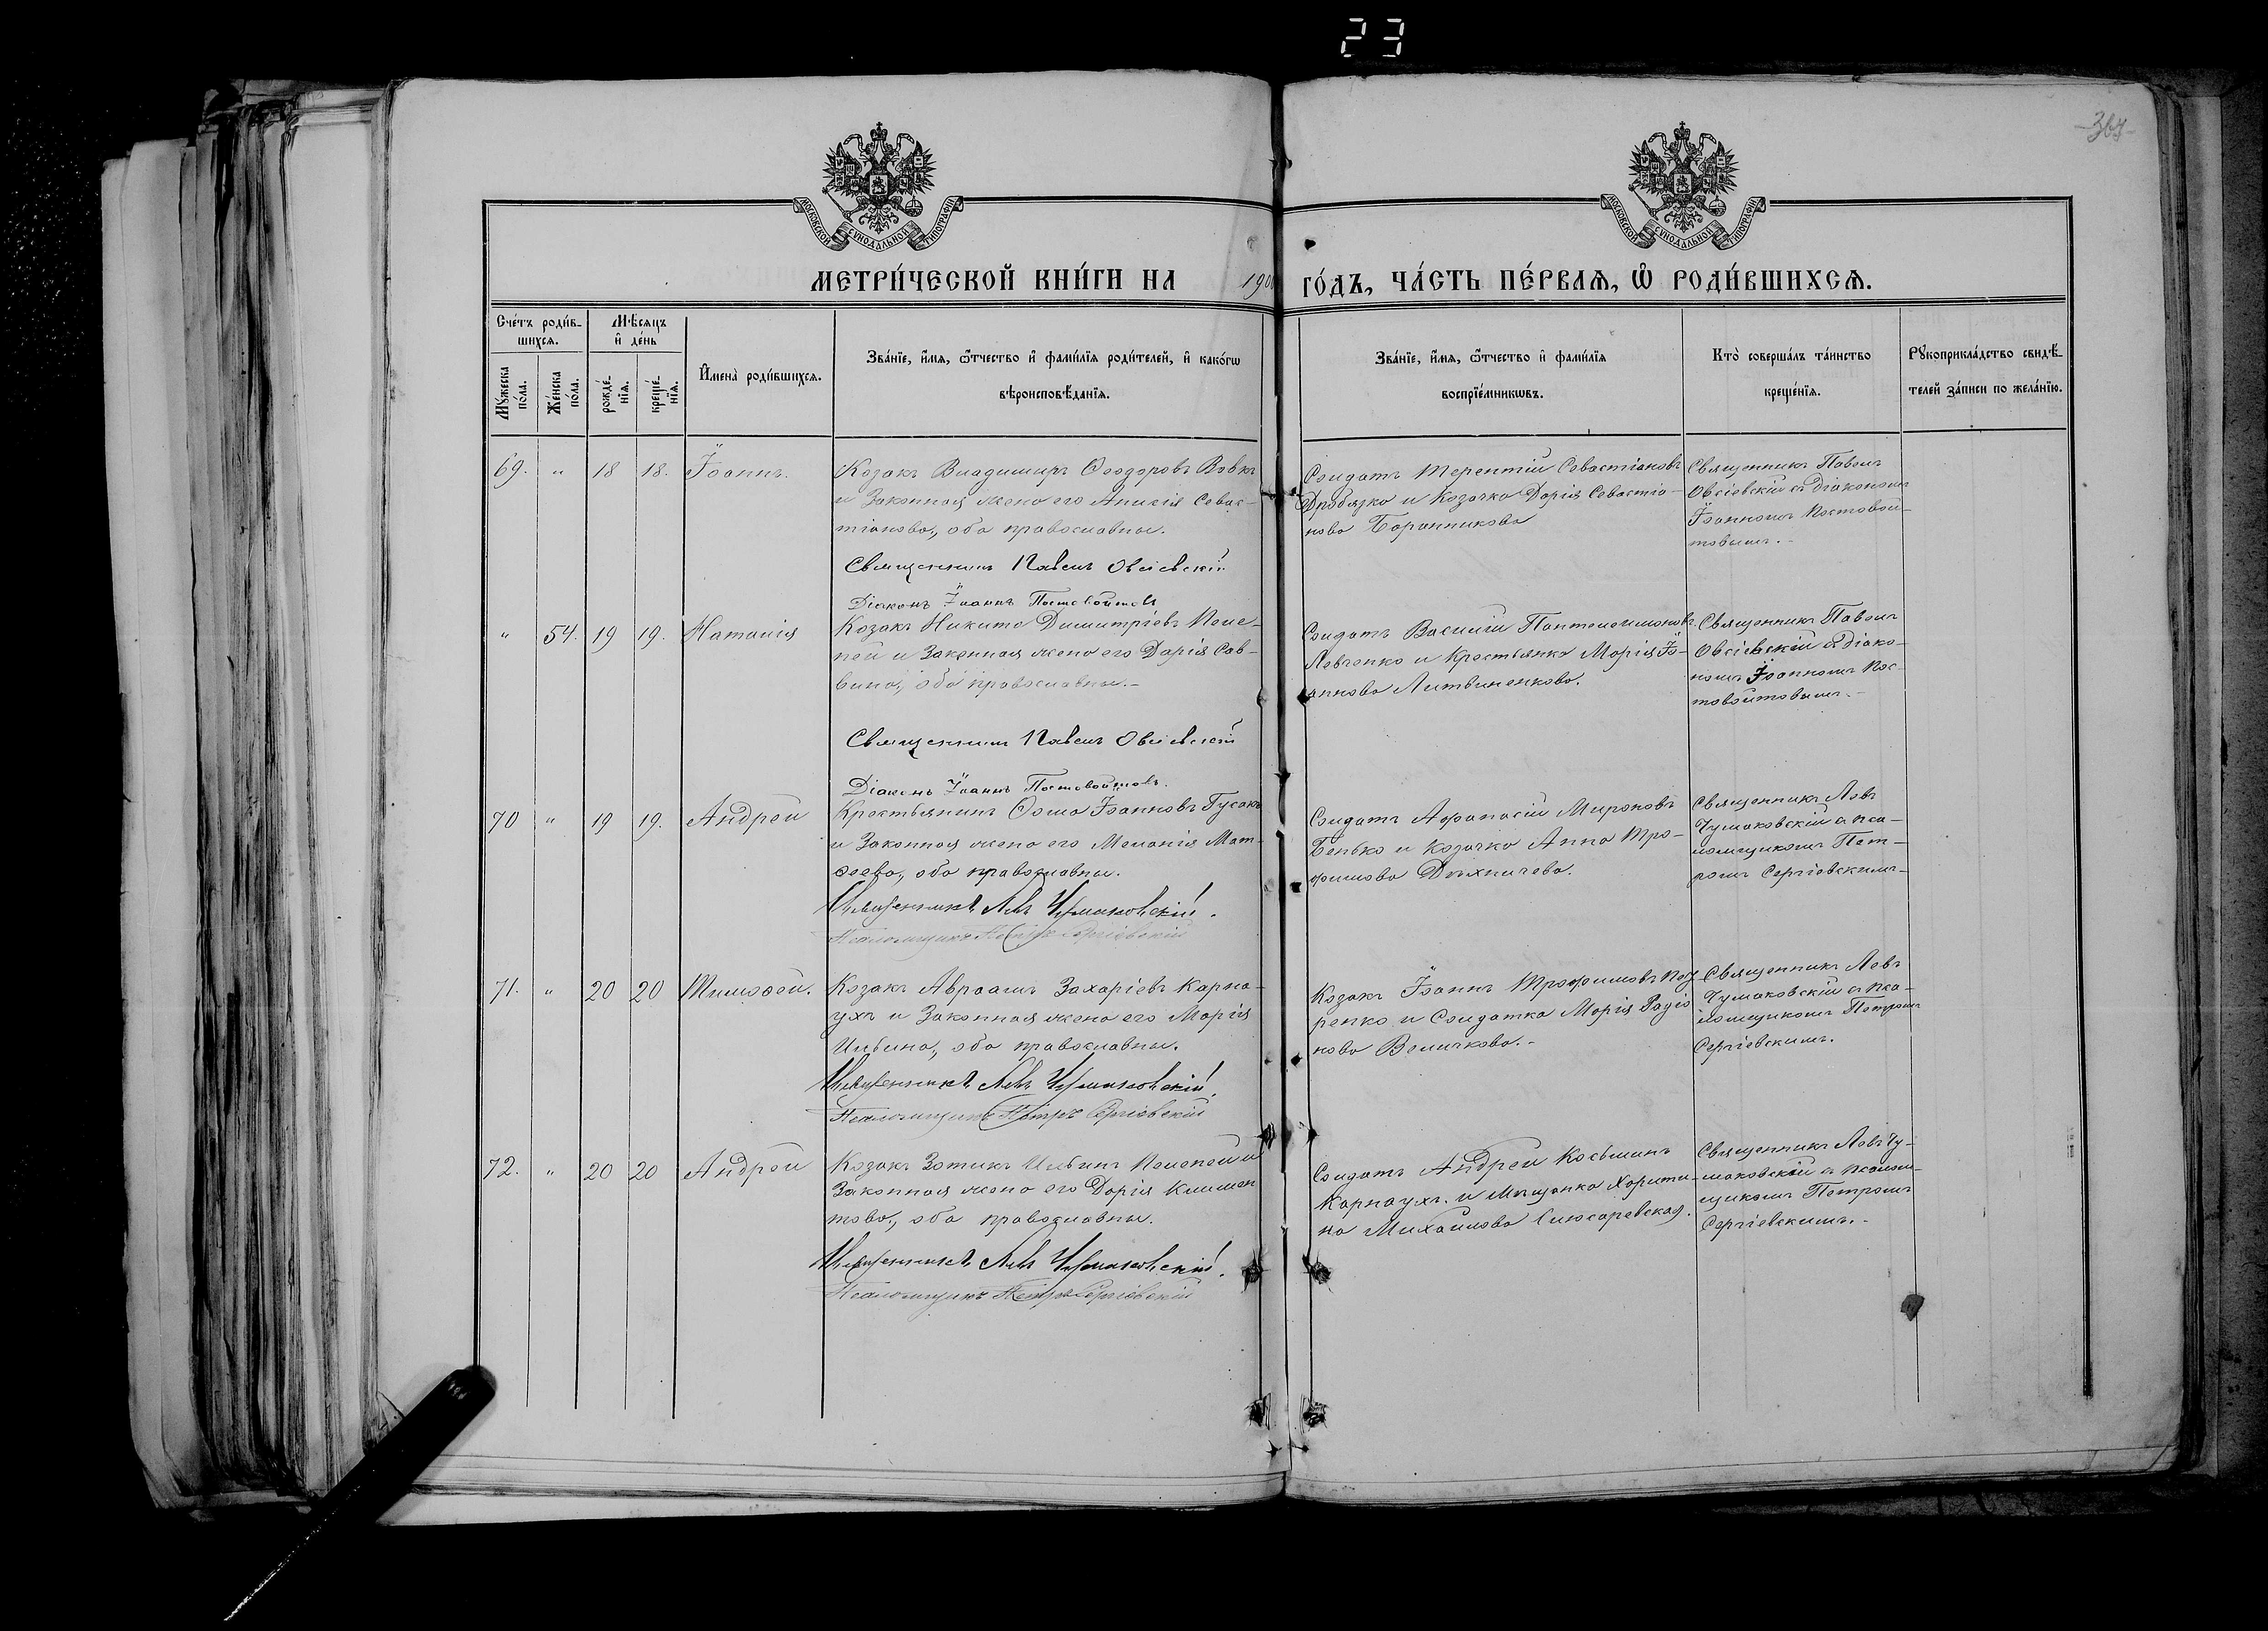 23
-367-
МОСКОВСКОЙ СѴНОДАЛЬНОЙ ТИПОГРАФІИ
МОСКОВСКОЙ СѴНОДАЛЬНОЙ ТИПОГРАФІИ
МЕТРИ́ЧЕСКОЙ КНИ́ГИ НА 190
ГО́ДЪ, ЧА́СТЬ ПЕ́РВАѦ, Ѽ РОДИ́ВШИХСѦ.
Сче́тъ роди́в-
шихсѧ.
Мꙋ́жеска по́ла.
Же́нска по́ла.
Мѣ́сѧцъ
и҆ де́нь
рожде́-
нїѧ.
креще́-
нїѧ.
И҆мена̀ роди́вшихсѧ.
Зва́нїе, и҆́мѧ, ѻ҆́тчество и҆ фами́лїѧ роди́телей, и҆ како́гѡ
вѣроисповѣ́данїѧ.
Зва́нїе, и҆́мѧ, ѻ҆́тчество и҆ фами́лїѧ
воспрїе́мникѡвъ.
Кто̀ соверша́лъ та́инство
креще́нїѧ.
Рꙋкоприкла́дство свидѣ́-
телей за́писи по жела́нїю.
69. " 18 18. Іоаннъ.
Козакъ Владимиръ Ѳеодоровъ Вовкъ
и Законная жена его Анисія Севас-
тіанова, оба православны.
Священникъ Павелъ Овсіевскій
Діаконъ Іоаннъ Постовойтовъ
Солдатъ Терентій Севастіановъ
Дробязко и Козачка Дарія Севастіа-
нова Баранникова
Священникъ Павелъ
Овсіевскій съ Діакономъ
Іоанномъ Постовой-
товымъ.-
" 54. 19 19. Наталія
Козакъ Никита Димитріевъ Пеле-
пей и Законная жена его Дарія Сав-
вина, оба православны.-
Священникъ Павелъ Овсіевскій
Діаконъ Іоаннъ Постовойтовъ.
Солдатъ Василій Пантелеимоновъ
Левченко и Крестьянка Марія Іо-
аннова Литвиненкова.
Священникъ Павелъ
Овсіевскій съ Діако-
номъ Іоанномъ Пос-
товойтовымъ.-
70 " 19 19. Андрей
Крестьянинъ Ѳома Іоанновъ Гусакъ
и Законная жена его Меланія Мат-
ѳеева, оба православны.
Священникъ Левъ Чумаковскій.
Псаломщикъ Петръ Сергіевскій
Солдатъ Аѳанасій Мироновъ
Бенько и Козачка Анна Тро-
фимова
Священникъ Левъ
Чумаковскій съ пса-
ломщикомъ Пет-
ромъ Сергіевскимъ-
71. " 20 20 Тимоѳей.
Козакъ Авраамъ Захаріевъ Карна-
ухъ и Законная жена его Марія
Ильина, оба православны.
Священникъ Левъ Чумаковскій.
Псаломщикъ Петръ Сергіевскій
Козакъ Іоаннъ Трофимовъ
ренко и Солдатка Марія Радіо
нова Величкова.-
Священникъ Левъ
Чумаковскій съ пса-
ломщикомъ Петромъ
Сергіевскимъ.
72. " 20 20 Андрей
Козакъ Зотикъ Ильинъ Пелепей и
Законная жена его Дарія Климен
това, оба православны.
Священникъ Левъ Чумаковскій.
Псаломщикъ Петръ Сергіевскій
Солдатъ Андрей Косьминъ
Карнаухъ. и Мѣщанка Харити-
на Михайлова Слюсаревская.
Священникъ Левъ Чу-
маковскій съ псалом-
щикомъ Петромъ
Сергіевскимъ.-